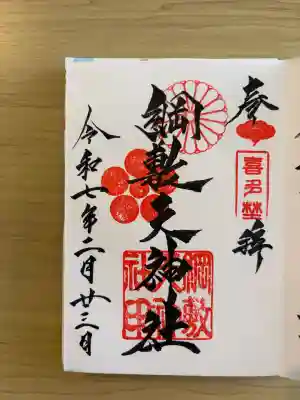 奉拝
喜多埜
綱敷天神社
綱敷天神社
令和七年二月廿三日